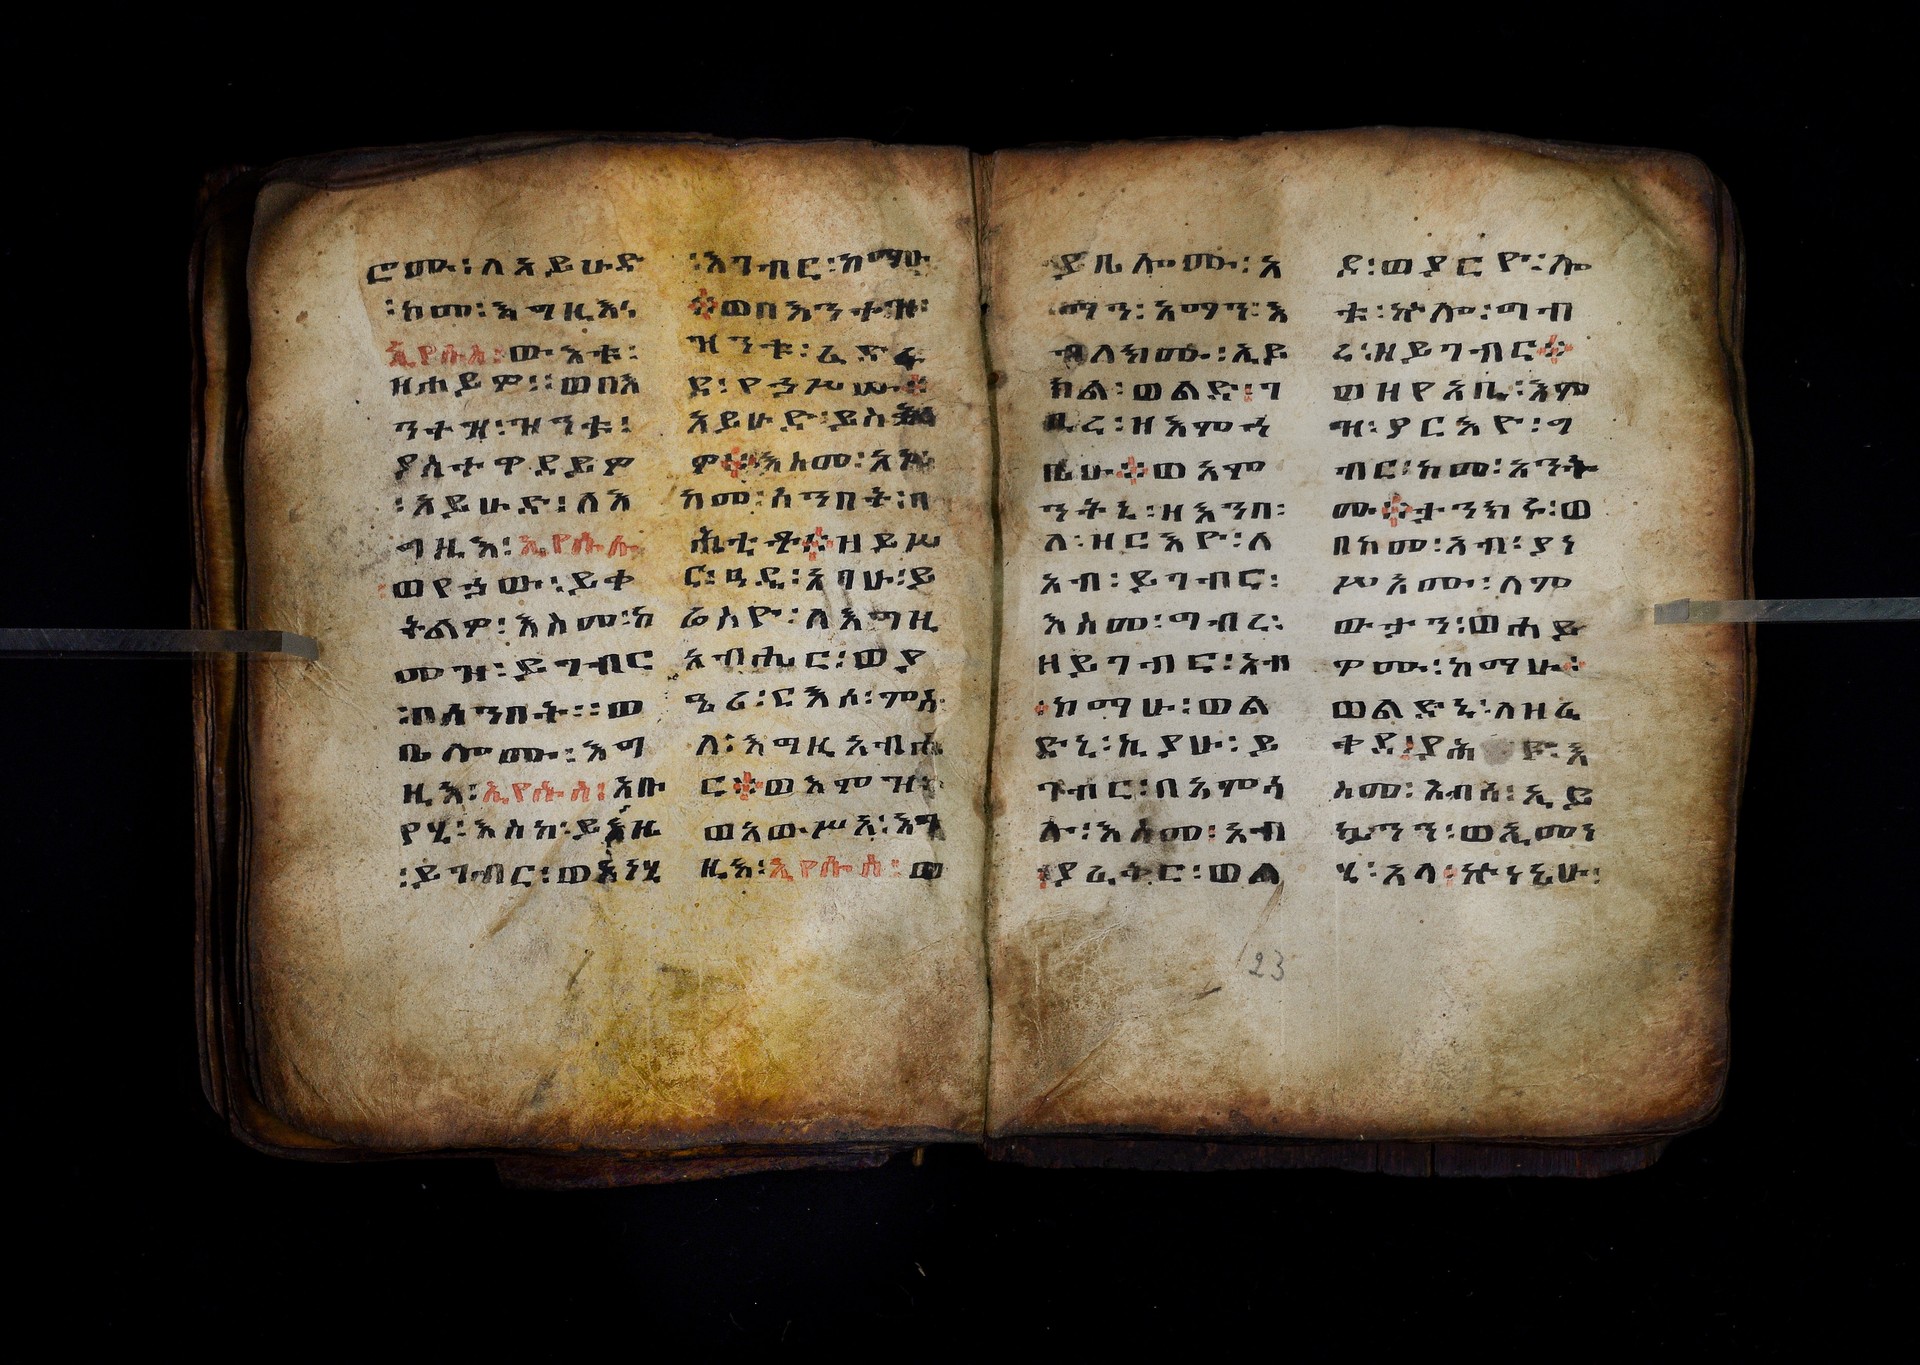 ሮሙ፡ለአይሁድ
፡ከመ፡እግዚእነ
ኢየሱስ፡ውእቱ፡
ዘሐይው፡፡ወበእ
ንተዝ፡ዝንቱ፡
ያስተዋደይዎ
፡አይሁድ፡ለእ
ግዚእ፡ኢየሱስ
ወየኃሡ፡ይቀ
ትልዎ፡እስመ፡ከ
መዝ፡ይገብር
፡በሰንበት፡፡ወ
ቤሎሙ፡እግ
ዚእ፡ኢየሱስ፡አቡ
የሂ፡እስከ፡ይእዜ
፡ይገብር፡ወአነሂ
፡እገብር፡ከማሁ
፡ወበእንተዝ፡
ዝንቱ፡ፈድፋ
ደ፡የኃሥሡ፡
አይሁድ፡ይስቅሉ
ዎ፡እስመ፡አኮ፡
ከመ፡ሰንበት፡ባ
ሕቲቶ፡ዘይሥ
ር፡ዓዲ፡አባሁ፡ይ
ሬስዮ፡ለእግዚ
አብሔር፡ወያ
ዔሪ፡ርእሰ፡ምስ
ለ፡እግዚአብሔ
ር፡ወእምዝ፡
ወአውሥአ፡እግ
ዚእ፡ኢየሱስ፡ወ
ይቤሎሙ፡አ
ማን፡አማን፡እ
ብለክሙ፡ኢይ
ክል፡ወልድ፡ገ
ቢረ፡ዘእምኀ
ቤሁ፡ወእም
ንትኒ፡ዘእንበ፡
ለ፡ዘርእዮ፡ለ
አብ፡ይገብር፡
እስመ፡ግብረ፡
ዘይገብር፡አብ
፡ከማሁ፡ወል
ድኒ፡ኪያሁ፡ይ
ገብር፡በአምሳ
ሉ፡እስመ፡አብ
፡ያፈቅር፡ወል
ደ፡ወያርዮ፡ሎ
ቱ፡ኵሎ፡ግብ
ረ፡ዘይገብር፡
ወዘየአቢ፡እም
ዝ፡ያርእዮ፡ግ
ብር፡ከመ፡አንት
ሙ፡ታንክሩ፡ወ
በከመ፡አብ፡ያነ
ሥእሙ፡ለም
ውታን፡ወሐይ
ዎሙ፡ከማሁ፡
ወልድኒ፡ለዘፈ
ቀደ፡ያሐዩ፡እ
ስመ፡አብሰ፡ኢይ
ኴንን፡ወኢመነ
ሂ፡አላ፡ኵነኔሁ፡
23